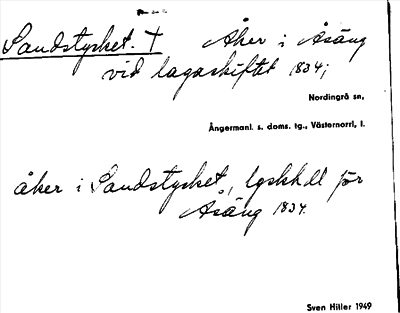 Sandstycket. † Åker i Åsäng
vid lagaskiftet 1834;
Nordingrå sn,
Ångermanl. s. doms. tg., Västernorrl, l.
åker i Sandstycket, för
Åsäng 1834.
Sven Hiller 1949